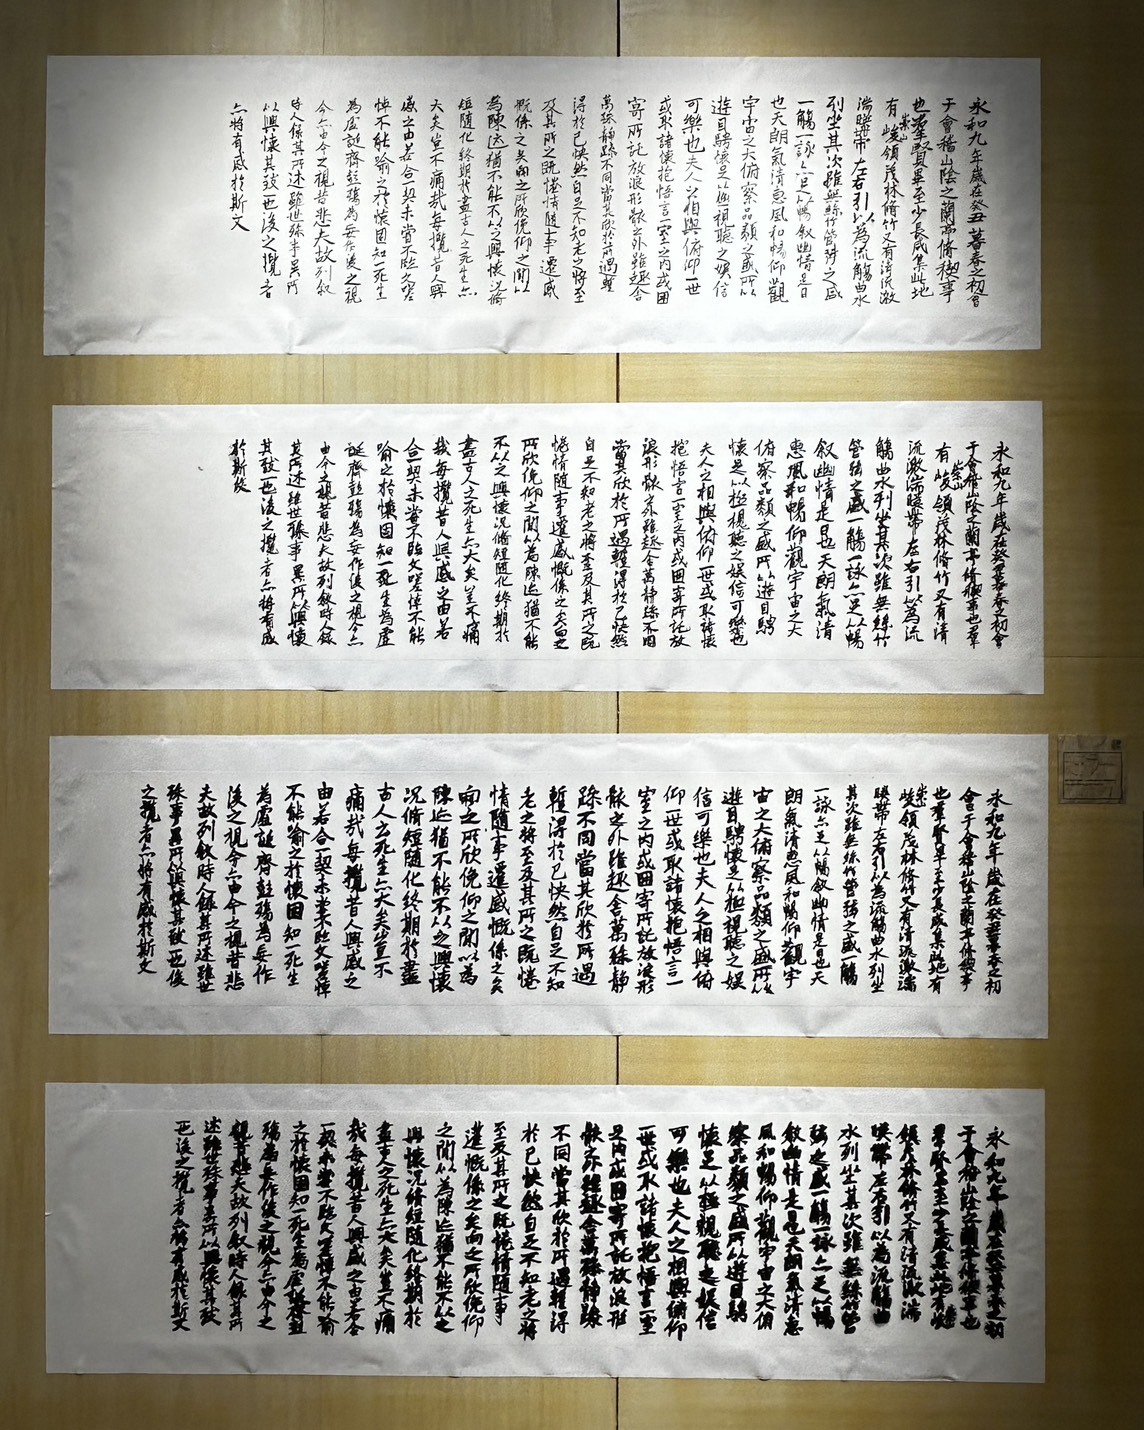 永和九年歲在癸丑暮春之初會
于會稽山陰之蘭亭脩稧事
也羣賢畢至少長咸集此地
有崇山峻領茂林脩竹又有清流激
湍暎帶左右引以為流觴曲水
列坐其次雖無絲竹管弦之盛
一觴一詠亦足以暢敘幽情是日
也天朗氣清惠風和暢仰觀
宇宙之大俯察品類之盛所以
遊目騁懷足以極視聽之娛信
可樂也夫人之相與俯仰一世
或取諸懷抱悟言一室之內或因
寄所託放浪形骸之外雖趣舍
萬殊靜躁不同當其欣於所遇暫
得於己快然自足不知老之將至
及其所之既惓情隨事遷感
慨係之矣向之所欣俛仰之閒以
為陳迹猶不能不以之興懷況脩
短隨化終期於盡古人云死生亦
大矣豈不痛哉每攬昔人興
感之由若合一契未嘗不臨文嗟
悼不能喻之於懷固知一死生
為虛誕齊彭殤為妄作後之視
今亦由今之視昔悲夫故列敘
時人錄其所述雖世殊事異所
以興懷其致一也後之攬者
亦將有感於斯文
永和九年歲在癸丑暮春之初會
于會稽山陰之蘭亭脩稧事也羣
有崇山峻領茂林脩竹又有清
流激湍暎帶左右引以為流
觴曲水列坐其次雖無絲竹
管弦之盛一觴一詠亦足以暢
敘幽情是日也天朗氣清
惠風和暢仰觀宇宙之大
俯察品類之盛所以遊目騁
懷足以極視聽之娛信可樂也
夫人之相與俯仰一世或取諸懷
抱悟言一室之內或因寄所託放
浪形骸之外雖趣舍萬殊靜躁不同
當其欣於所遇暫得於己快然
自足不知老之將至及其所之既
惓情隨事遷感慨係之矣向之
所欣俛仰之閒以為陳迹猶不能
不以之興懷況脩短隨化終期於
盡古人云死生亦大矣豈不痛
哉每攬昔人興感之由若
合一契未嘗不臨文嗟悼不能
喻之於懷固知一死生為虛
誕齊彭殤為妄作後之視今亦
由今之視昔悲夫故列敘時人錄
其所述雖世殊事異所以興懷
其致一也後之攬者亦將有感
於斯文
永和九年歲在癸丑暮春之初
會于會稽山陰之蘭亭脩稧事
也羣賢畢至少長咸集此地有
崇山峻領茂林脩竹又有清流激湍
暎帶左右引以為流觴曲水列坐
其次雖無絲竹管弦之盛一觴
一詠亦足以暢敘幽情是日也天
朗氣清惠風和暢仰觀宇
宙之大俯察品類之盛所以
遊目騁懷足以極視聽之娛
信可樂也夫人之相與俯
仰一世或取諸懷抱悟言一
室之內或因寄所託放浪形
骸之外雖趣舍萬殊靜
躁不同當其欣於所遇
暫得於己快然自足不知
老之將至及其所之既惓
情隨事遷感慨係之矣
向之所欣俛仰之閒以為
陳迹猶不能不以之興懷
況脩短隨化終期於盡
古人云死生亦大矣豈不
痛哉每攬昔人興感之
由若合一契未嘗不臨文嗟悼
不能喻之於懷固知一死生
為虛誕齊彭殤為妄作
後之視今亦由今之視昔悲
夫故列敘時人錄其所述雖世
殊事異所以興懷其致一也後
之攬者亦將有感於斯文
永和九年歲在癸丑暮春之初
于會稽山陰之蘭亭脩稧事也
羣賢畢至少長咸集此地有崇山峻
領茂林脩竹又有清流激湍
暎帶左右引以為流觴曲
水列坐其次雖無絲竹管
弦之盛一觴一詠亦足以暢
敘幽情是日也天朗氣清惠
風和暢仰觀宇宙之大俯
察品類之盛所以遊目騁
懷足以極視聽之娛信
可樂也夫人之相與俯仰
一世或取諸懷抱悟言一室
之內或因寄所託放浪形
骸之外雖趣舍萬殊靜躁
不同當其欣於所遇暫得
於己快然自足不知老之將
至及其所之既惓情隨事
遷慨係之矣向之所欣俛仰
之閒以為陳迹猶不能不以之
興懷況脩短隨化終期於
盡古人云死生亦大矣豈不痛
哉每攬昔人興感之由若合
一契未嘗不臨文嗟悼不能喻
之於懷固知一死生為虛誕齊彭
殤為妄作後之視今亦由今之
視昔悲夫故列敘時人錄其所
述雖世殊事異所以興懷其致
一也後之攬者亦將有感於斯文